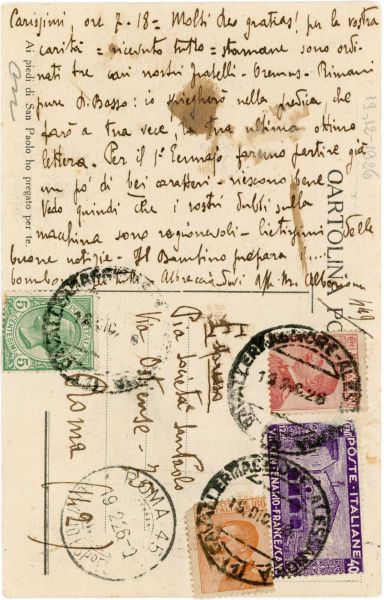 Carissimi, ore 7-18 = Molti Deo gratias! per la vostra
carità = ricevuto tutto = stamane sono ordi-
nati tre cari nostri fratelli -
pure D. Basso: io spiegherò nella predica, che
farò a tua vece, la tua ultima ottima
lettera. Per il 1° Gennaio faremo partire già
un po' di bei caratteri - riescono bene
Vedo quindi che i vostri dubbi sulla
macchina sono ragionevoli - lietissimi delle
buone notizie. Il Bambino prepara i....
bombon per tutti. Abbracciandovi aff. M. Alberione
19.12.1926
Ai piedi di San Paolo ho pregato per te.
CARTOLINA PO
Pia Società San Paolo
Via Ostense
Roma
ROMA 45
19 12 26-9
5
CENTESIMI
POSTE ITALIANE
CENTENARIO FRANCESCANO
40
18 DIC 26